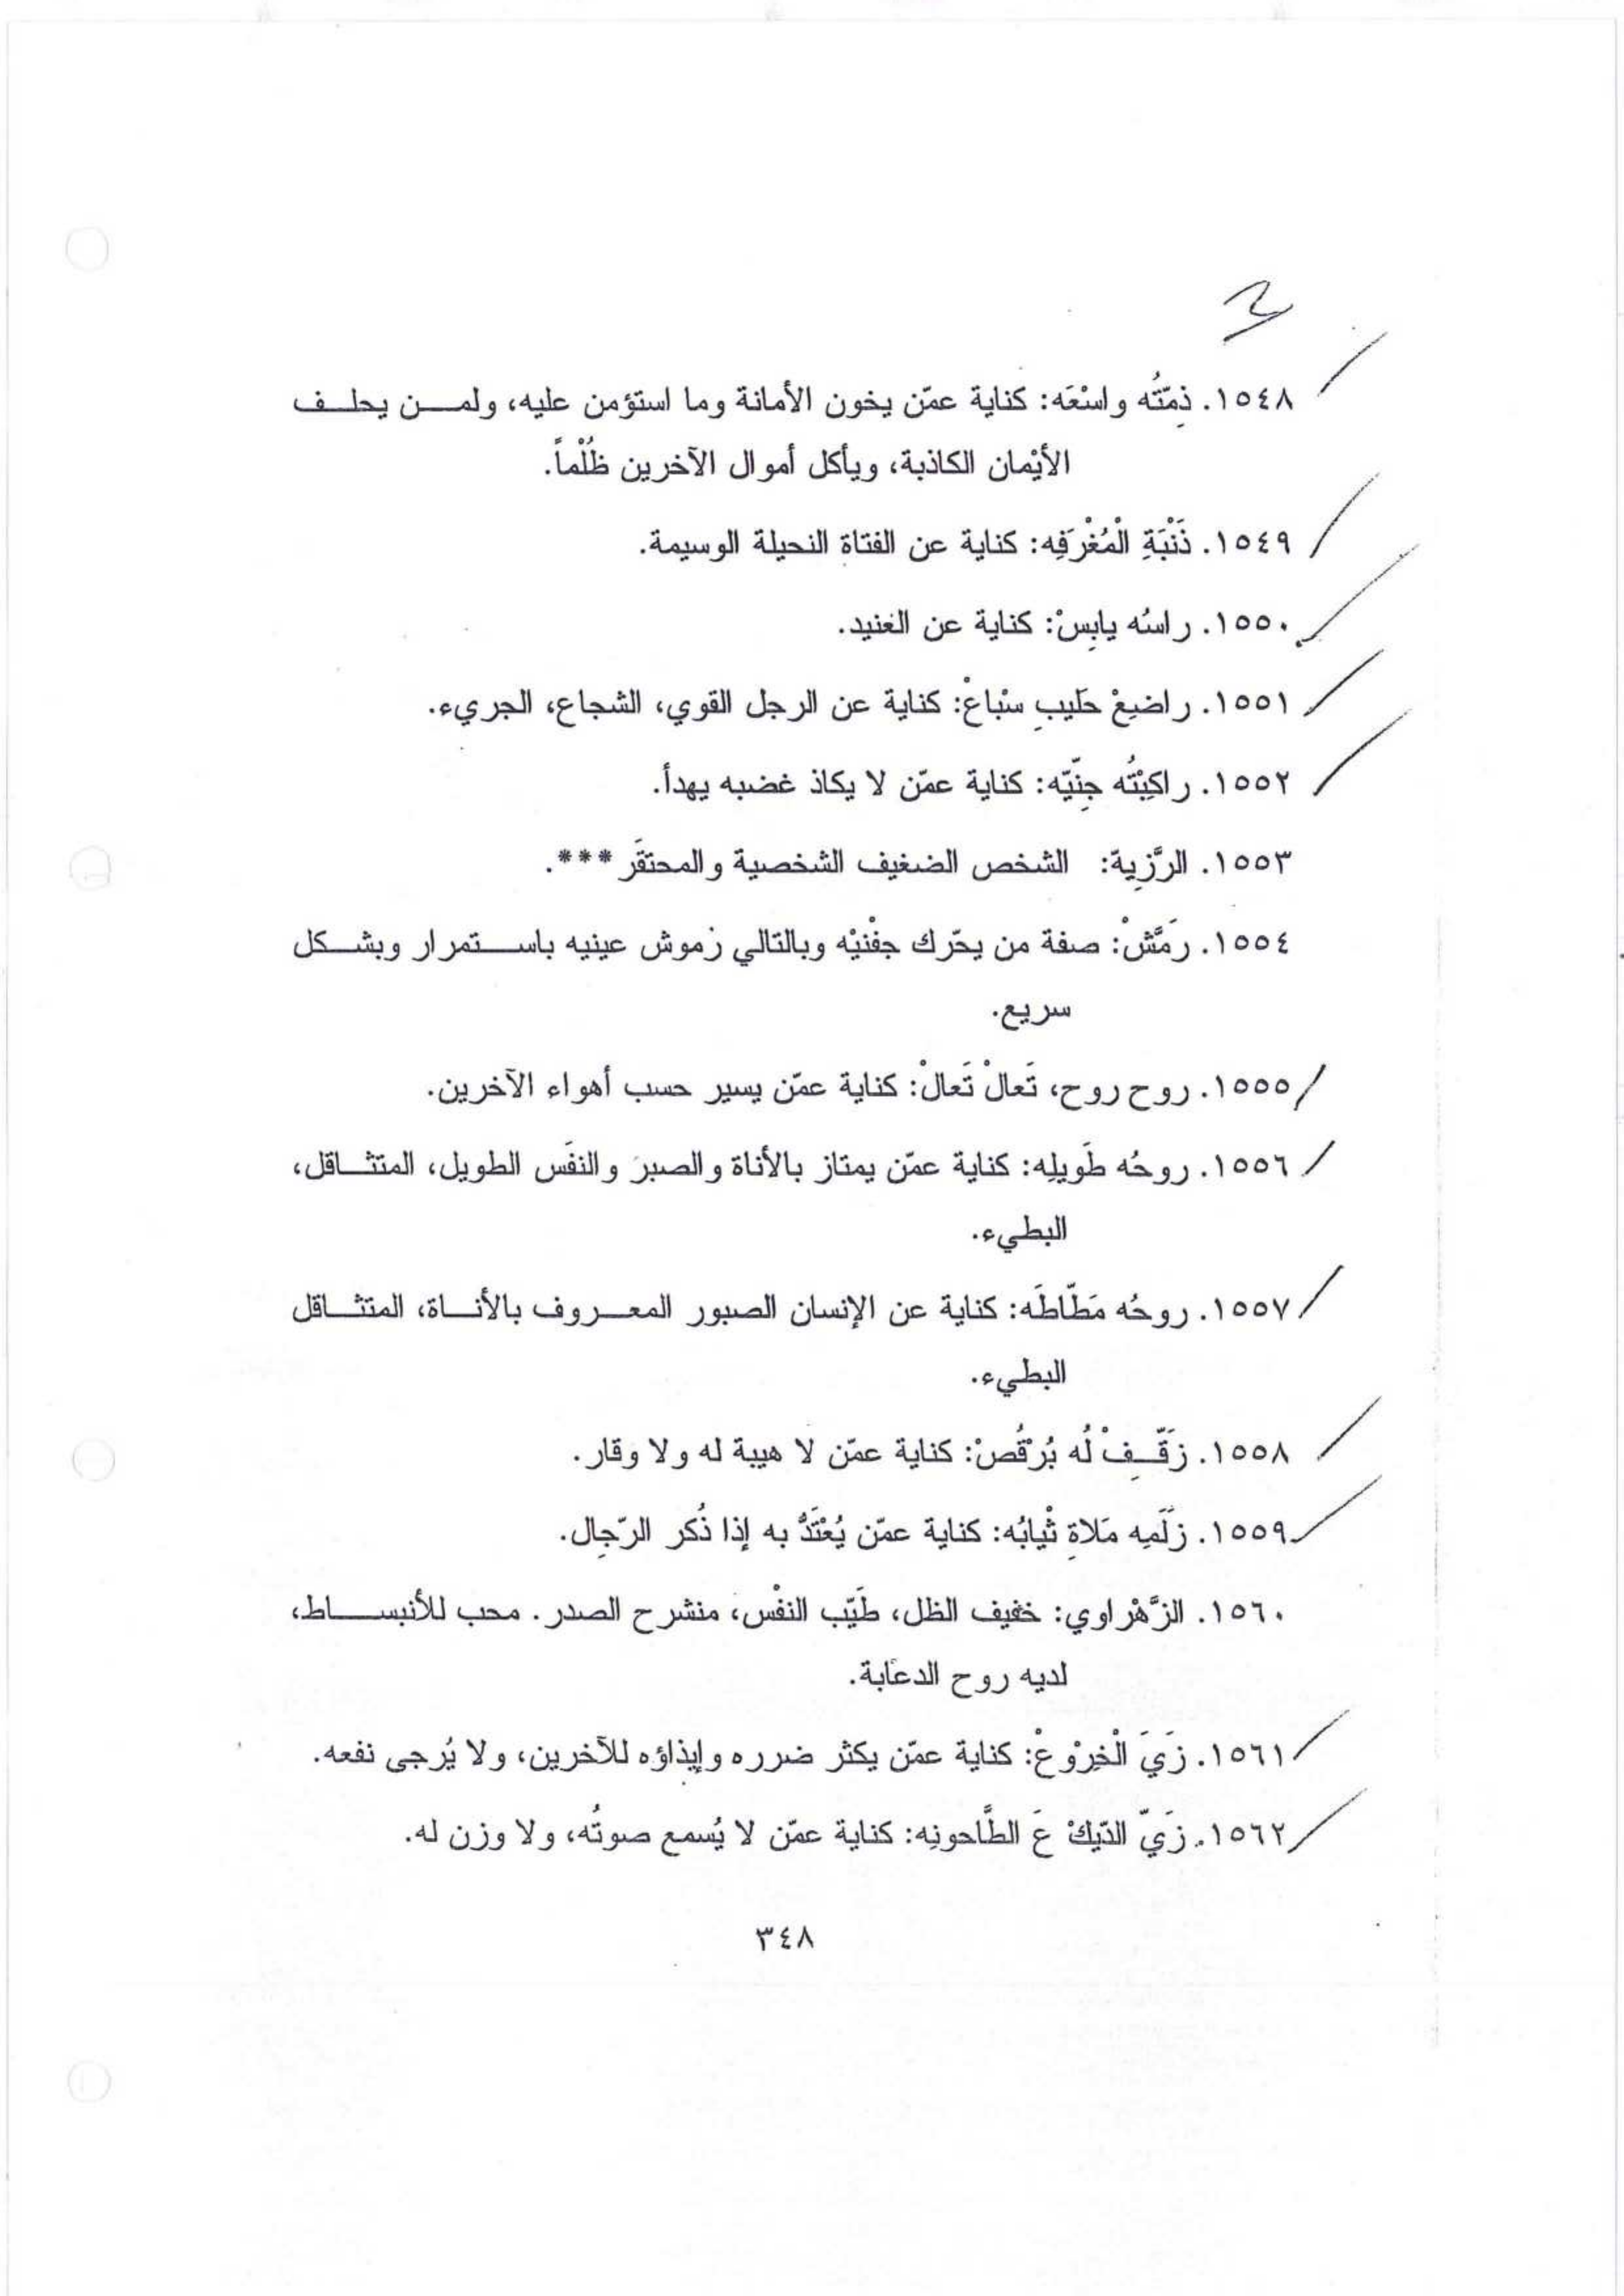 ١٥٤٨. ذِمّتُه واسْعَه: كناية عمّن يخون الأمانة وما استؤمن عليه، ولمن يحلف
الأيْمان الكاذبة، ويأكل أموال الآخرين ظُلْماً.
١٥٤٩. ذَنْبَةِ الْمُغْرَفِه: كناية عن الفتاة النحيلة الوسيمة.
١٥٥٠. راسُه يابِسْ: كناية عن العنيد.
١٥٥١. راضِعْ حَليبِ سْباعْ: كناية عن الرجل القوي، الشجاع، الجريء.
١٥٥٢. راكِبْتُه جِنِّيّه: كناية عمّن لا يكاد غضبه يهدأ.
١٥٥٣. الرَّزِية: الشخص الضعيف الشخصية والمحتقَر ***.
١٥٥٤. رَمَّشْ: صفة من يحّرك جفْنيْه وبالتالي رموش عينيه باستمرار وبشكل
سريع.
١٥٥٥. روح روح، تَعالْ تَعالْ: كناية عمّن يسير حسب أهواء الآخرين.
١٥٥٦. روحُه طَويلِه: كناية عمّن يمتاز بالأناة والصبر والنفَس الطويل، المتثاقل،
البطيء.
١٥٥٧. روحُه مَطّاطَه: كناية عن الإنسان الصبور المعروف بالأناة، المتثاقل
البطيء.
١٥٥٨. زَقِّفْ لُه بُرْقُصْ: كناية عمّن لا هيبة له ولا وقار.
١٥٥٩. زَلَمِه مَلاةِ ثْيابُه: كناية عمّن يُعْتَدُّ به إذا ذُكر الرّجال.
١٥٦٠. الزَّهْراوي: خفيف الظل، طَيّب النفْس، منشرح الصدر. محب للأنبساط،
لديه روح الدعابة.
١٥٦١. زَيَ الْخِرْوْعْ: كناية عمّن يكثر ضرره وإيذاؤه للآخرين، ولا يُرجى نفعه.
١٥٦٢. زَيّ الدّيكْ عَ الطَّاحونِه: كناية عمّن لا يُسمع صوتُه، ولا وزن له.
٣٤٨